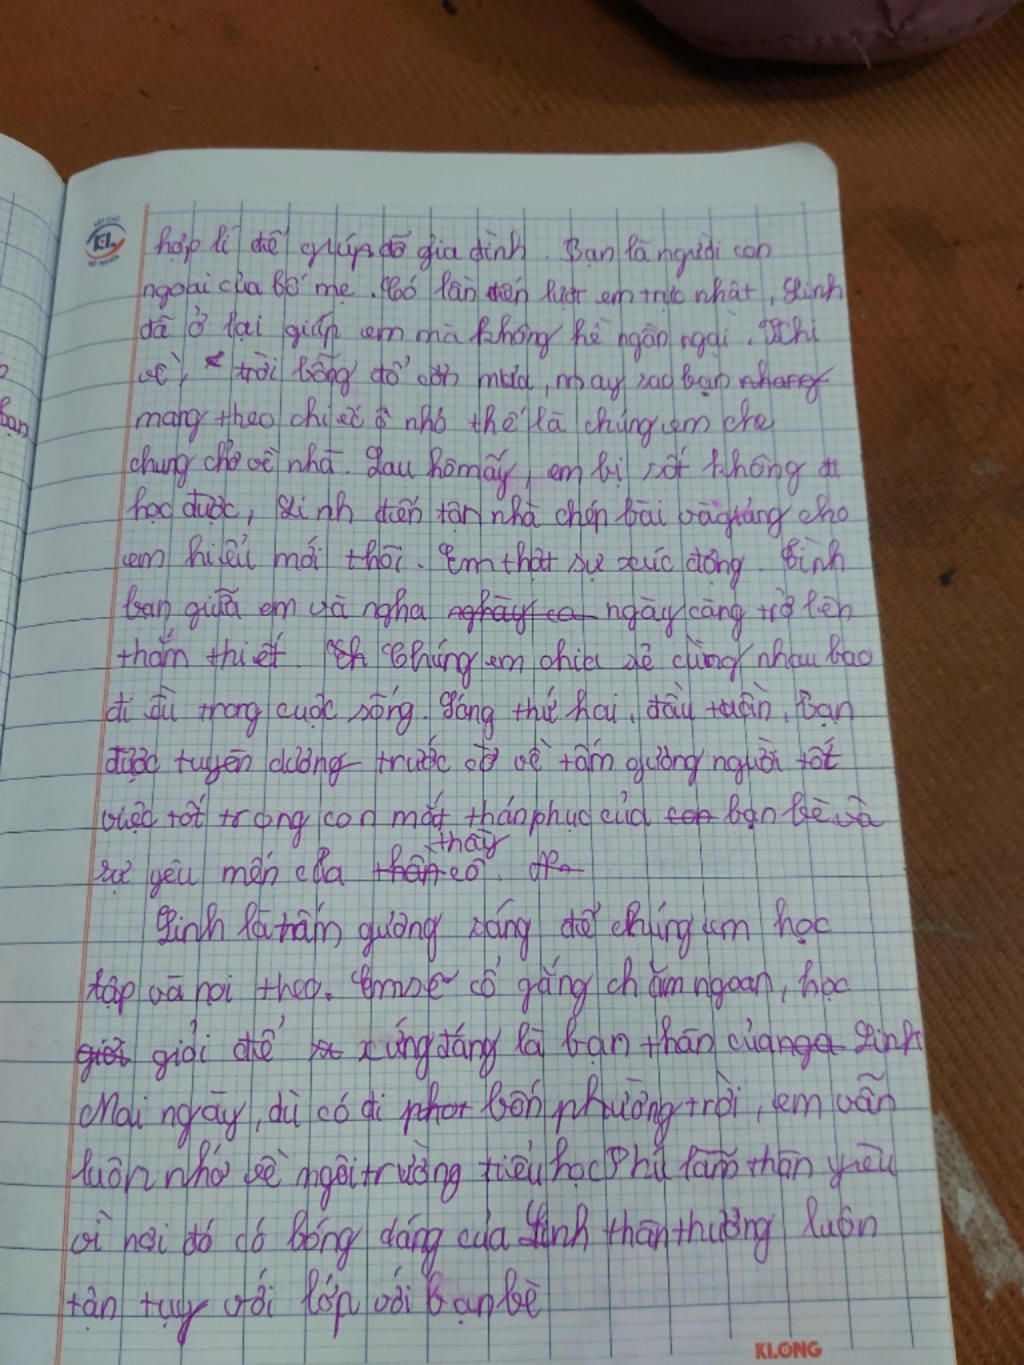 hợp lí để giúp đỡ gia đình. Bạn là người con
ngoài của bố mẹ. Có lần đến lượt em trực nhật, Linh
đã ở lại giúp em mà không hề ngần ngại. Khi
về, trời bỗng đổ cơn mưa, may sao bạn nhang
mang theo chiếc ô nhỏ thế là chúng em che
chung chở về nhà. Sau hôm ấy, em bị sốt không đi
học được, Linh đến tận nhà chép bài và giảng cho
em hiểu mới thôi. Em thật sự xúc động. Tình
bạn giữa em và ngha nghày ca ngày càng trở lên
thắm thiết. Chúng em chia sẻ cùng nhau bao
điều trong cuộc sống. Sáng thứ hai, đầu tuần, bạn
được tuyên dương trước cờ về tấm gương người tốt
việc tốt trong con mắt thán phục của con bạn bè và
thầy
sự yêu mến của thân cô.
Linh là tấm gương sáng để chúng em học
tập và noi theo. Em sẽ cố gắng chăm ngoan, học
giỏi giỏi để xứng đáng là bạn thân của nga Linh
Mai ngày, dù có đi phơt bốn phương trời, em vẫn
luôn nhớ về ngôi trường tiểu học Phú Lâm thân yêu
vì nơi đó có bóng dáng của Linh thân thương luôn
tận tụy với lớp với bạn bè
KLONG